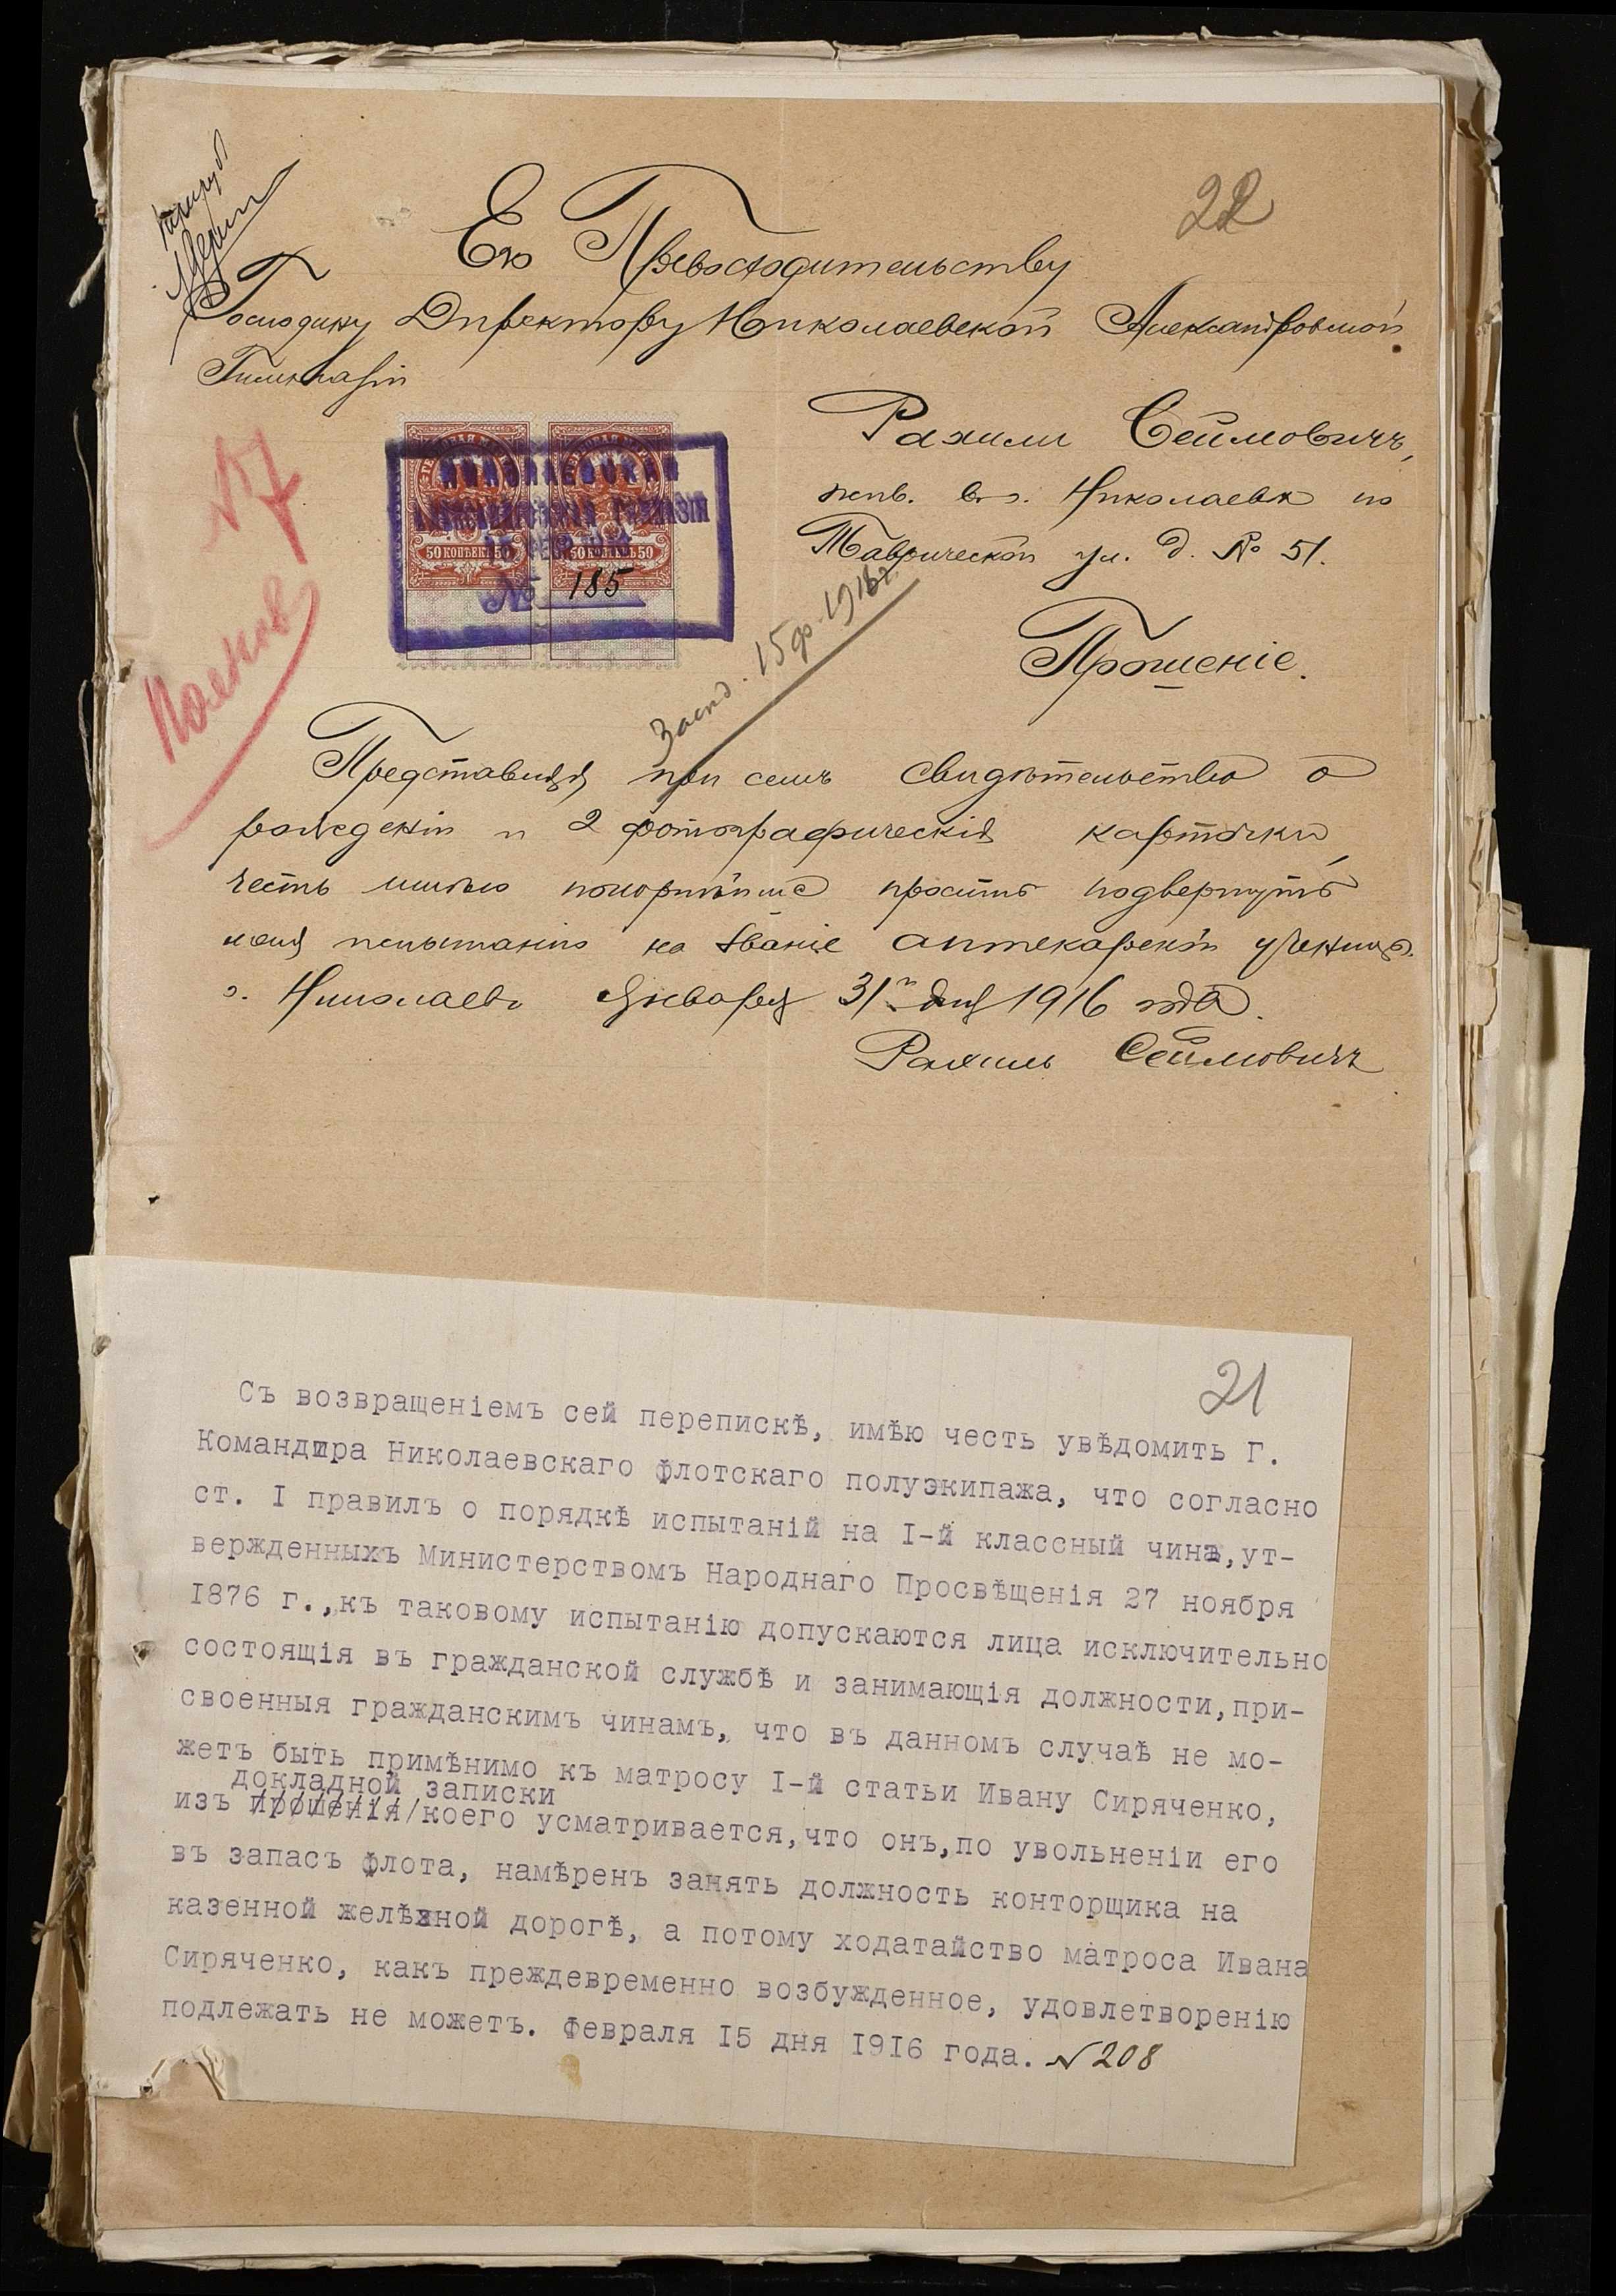 22
Его Превосходительству
Господину Директору Николаевской Александровской
Гимназіи
Рахили Сеймовичъ,
жив. въ г. Николаевѣ по
Таврической ул. д. № 51.
НИКОЛАЕВСКАЯ
АЛЕКСАНДРОВСКАЯ ГИМНАЗІЯ
15 ФЕВ 1916
№ 185
50 КОПѢЕКЪ 50
50 КОПѢЕКЪ 50
№7
15 ф. 1916 г.
Прошеніе.
Представляя при семъ свидѣтельство о
рожденіи и 2 фотографическія карточки,
честь имѣю покорнѣйше просить подвергнуть
меня испытанію на званіе аптекарской ученицы.
г. Николаевъ Января 31го дня 1916 года.
Рахиль Сеймовичъ
21
Съ возвращеніемъ сей перепискѣ, имѣю честь увѣдомить Г.
Командира Николаевскаго флотскаго полуэкипажа, что согласно
ст. I правилъ о порядкѣ испытаній на I-й классный чинъ, ут-
вержденныхъ Министерствомъ Народнаго Просвѣщенія 27 ноября
1876 г., къ таковому испытанію допускаются лица исключительно
состоящія въ гражданской службѣ и занимающія должности, при-
своенныя гражданскимъ чинамъ, что въ данномъ случаѣ не мо-
жетъ быть примѣнимо къ матросу I-й статьи Ивану Сиряченко,
докладной записки
изъ прошенія/коего усматривается, что онъ, по увольненіи его
въ запасъ флота, намѣренъ занять должность конторщика на
казенной желѣзной дорогѣ, а потому ходатайство матроса Ивана
Сиряченко, какъ преждевременно возбужденное, удовлетворенію
подлежать не можетъ. Февраля 15 дня 1916 года. № 208